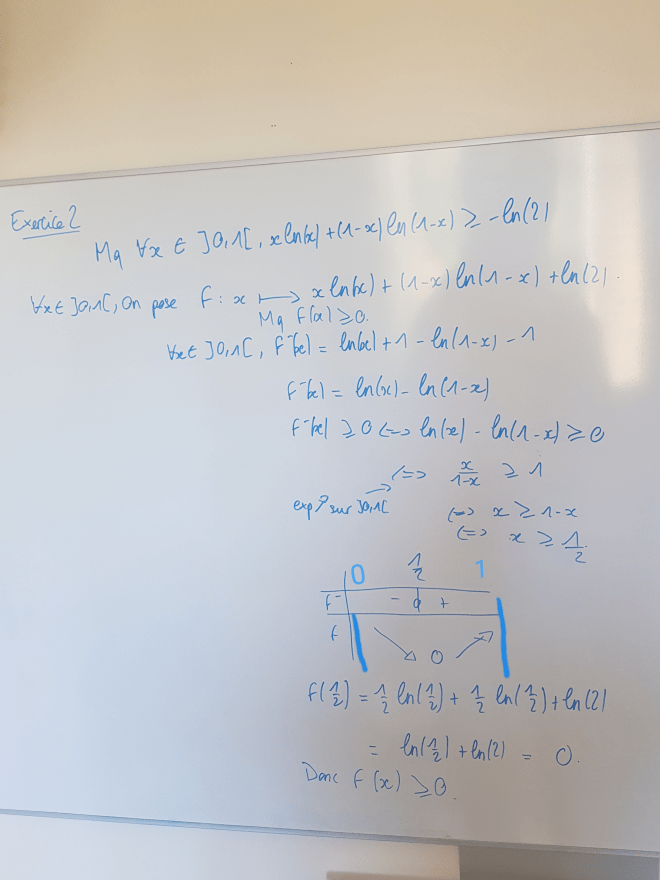 Exercice 2
Mq ∀x ∈ ]0,1[, x ln(x) + (1-x) ln(1-x) ≥ -ln(2)
∀x ∈ ]0,1[, On pose f : x ⟼ x ln(x) + (1-x) ln(1-x) + ln(2).
Mq f(x) ≥ 0.
∀x ∈ ]0,1[, f'(x) = ln(x) + 1 - ln(1-x) - 1
f'(x) = ln(x) - ln(1-x)
f'(x) ≥ 0 <=> ln(x) - ln(1-x) ≥ 0
<=> x/(1-x) ≥ 1
exp ↗ sur ]0,1[ <=> x ≥ 1-x
<=> x ≥ 1/2.
0 1/2 1
f' - 0 +
f ↘ 0 ↗
f(1/2) = 1/2 ln(1/2) + 1/2 ln(1/2) + ln(2)
= ln(1/2) + ln(2) = 0.
Donc f(x) ≥ 0.